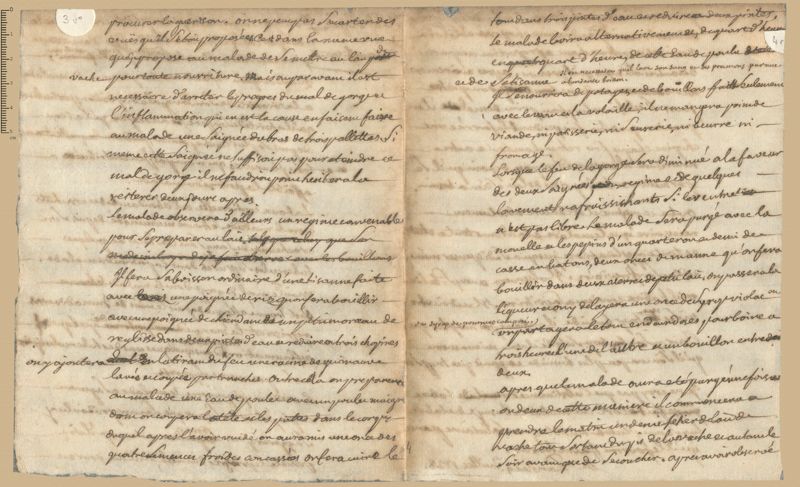 3 v°
procurer la guerison. on ne peut pas s'ecarter des
vues qu'il s'etoit proposées
que je propose au malade de se mettre au lait de
vache pour toute nourriture, Mais auparavant il est
necessaire d'arreter le progres du mal de gorge et
l'inflammation qui en est la cause en faisant faire
au malade une Saignée du bras de trois pallettes. Si
meme cette Saignée ne suffisoit pas pour eteindre ce
mal de gorge il ne faudroit point hesiter a la
reiterer deux jours apres.
Le malade observera d'ailleurs un regime convenable
pour se preparer au lait,
Il fera sa boisson ordinaire d'une tisanne faite
avec une poignée de ris qu'on fera bouillir
avec une poignée de chiendent et un petit morceau de
reglisse dans d'eau et reduire a trois chopines
on y ajoutera en la tirant du feu une racine de guimauve
lavée et coupée par tranches. Outre cela on preparera
au malade une Eau de poulet avec un poulet maigre
dont on coupera la tete et les pattes dans le corps
duquel apres l'avoir vuidé on aura mis une once des
quatre semences froides concassées on fera cuire le
4 r
tout dans trois pintes d'eau et reduire a deux pintes,
le malade boira alternativement de quart d'heure
en quart d'heure, de cette Eau de poulet
et de sa tisanne
Il se nourrira de potages et de bouillons faits seulement
avec le veau et la volaille, il ne mangera point de
viande, ni patisserie, ni sucrerie, ni beurre ni
fromage.
Lorsque le feu de la gorge sera diminué a la faveur
des deux saignées du regime et de quelques
lavements rafraissishants si le ventre
n'est pas libre le malade sera purgé avec la
mouelle et les pepins d'un quarteron et demi de
casse en batons, deux onces de manne qu'on fera
bouillir dans deux verres de petit lait, on passera la
liqueur et on y delayera une once de Syrop violat ou
du sirop de pommes composé
on partagera le tout en deux doses pour boire a
trois heures l'une de l'autre et un bouillon entre
deux.
apres que le malade aura eté purgé une fois
ou deux de cette maniere il commencera a
prendre le matin un demi setier de lait de
vache tout sortant du pis de la vache et autant le
Soir avant que de se coucher. apres avoir observé